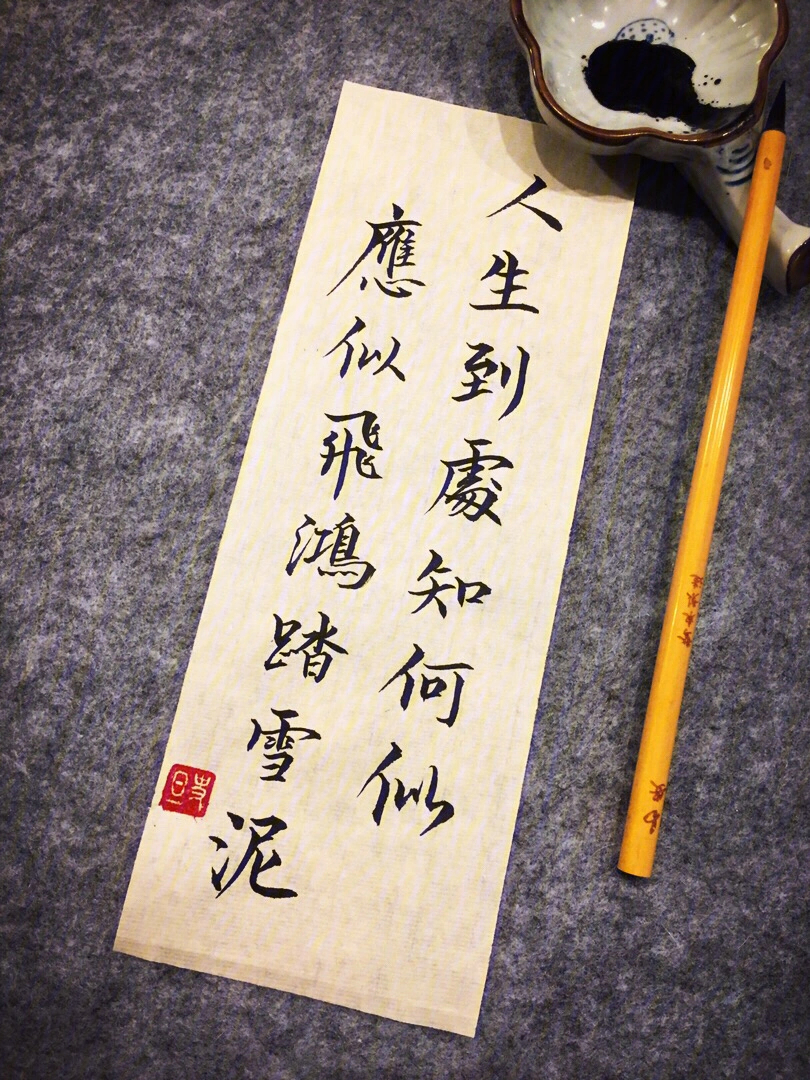 人生到處知何似
應似飛鴻踏雪泥